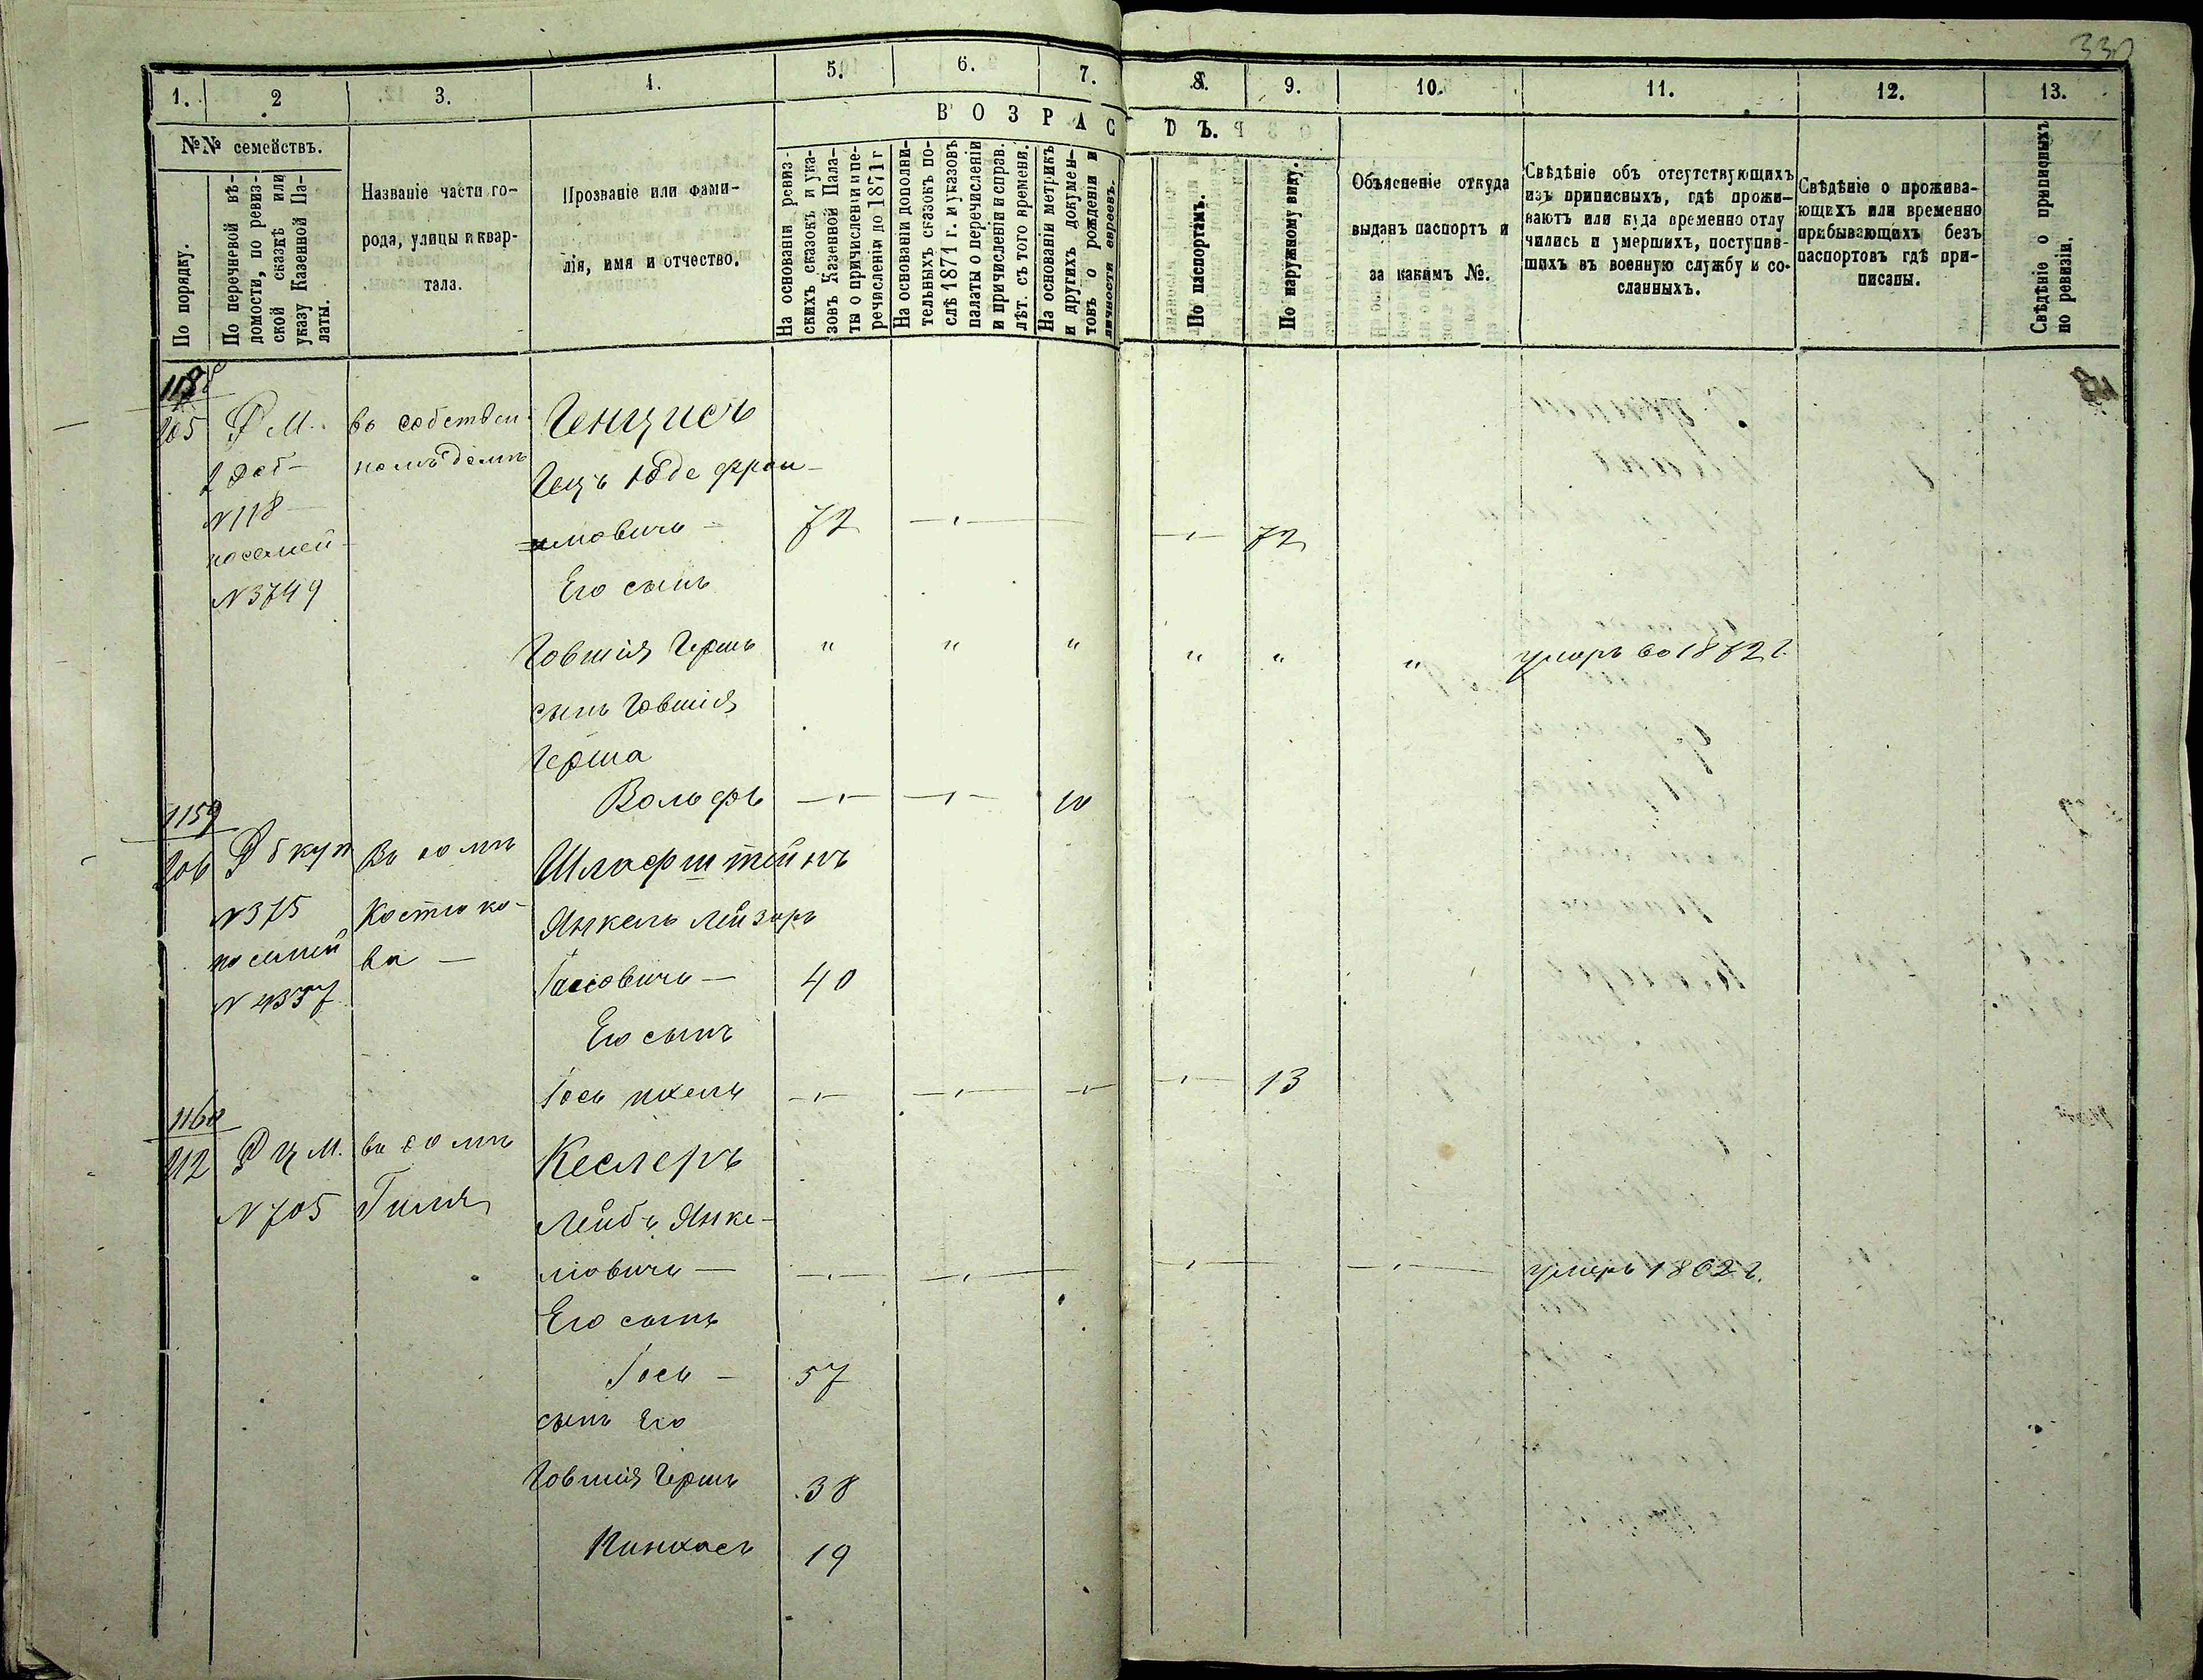 1.
2
3.
4.
5.
6.
7.
8.
9.
10.
11.
12.
13.
№№ семействъ.
ВОЗРАСТЪ.
По порядку.
По перечневой вѣ-
домости, по ревиз-
ской сказкѣ или
указу Казенной Па-
латы.
Названіе части го-
рода, улицы и квар-
тала.
Прозваніе или фами-
лія, имя и отчество.
На основаніи ревиз-
скихъ сказокъ и ука-
зовъ Казенной Пала-
ты о причисленіи и пе-
речисленіи до 1871 г
На основаніи дополни-
тельныхъ сказокъ по-
слѣ 1871 г. и указовъ
палаты о перечисленіи
и причисленіи и справ.
лѣт. съ того времени.
На основаніи метрикъ
и другихъ докумен-
товъ о рожденіи и
личности евреевъ.
По паспортамъ.
По наружному виду.
Объясненіе откуда
выданъ паспортъ и
за какимъ №.
Свѣдѣніе объ отсутствующихъ
изъ приписныхъ, гдѣ прожи-
ваютъ или куда временно отлу
чились и умершихъ, поступив-
шихъ въ военную службу и со-
сланныхъ.
Свѣдѣніе о прожива-
ющихъ или временно
прибывающихъ безъ
паспортовъ гдѣ при-
писаны.
Свѣдѣніе о приписныхъ
по ревизіи.
205
во собствен
Генцисъ
номъ домѣ
№118
мовичъ — 72 — 72
посемей
Его сынъ
№3749
Говшія Гершъ " " " " " " умеръ во 1872 г.
сынъ Говшія
Герша
Вольфъ — — 10
1159
206
Во домѣ
Шлаферштейнъ
№375
Костюко-
Янкель Лейзоръ
посемей
ва —
Іосіовичъ — 40
№4337
Его сынъ
13
1160
212
во домѣ
Кеслеръ
№705
Гиля
Лейбъ Янке-
ліовичъ — умеръ 1862 г.
Его сынъ
Іось — 57
сынъ Его
Говшія Гершъ 38
Пинхасъ 19